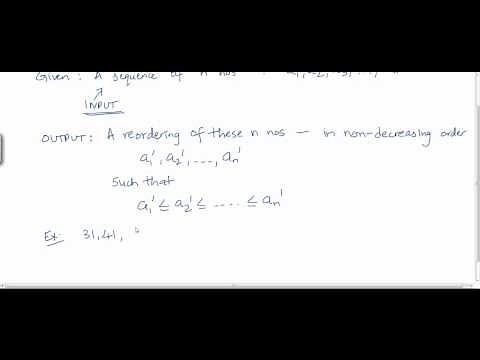 Given: A sequence of n nos
INPUT
OUTPUT: A reordering of these n nos — in non-decreasing order
a₁', a₂', ..., aₙ'
Such that
a₁' ≤ a₂' ≤ .... ≤ aₙ'
Ex: 31, 41,